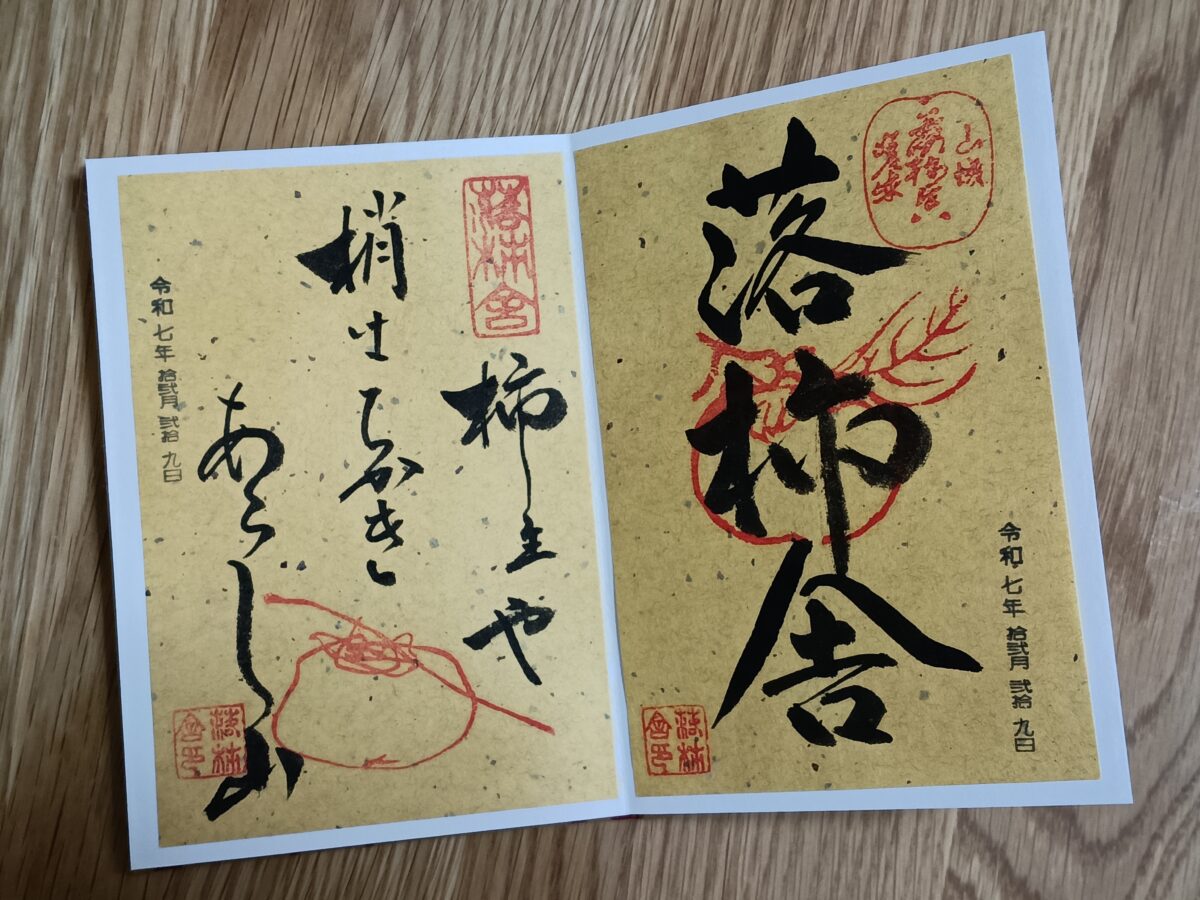 山城
嵯峨
落柿舎
令和七年 拾弐月 弐拾 九日
落柿舎印
落柿舎
柿主や
梢はちかき
あらし山
令和七年 拾弐月 弐拾 九日
落柿舎印